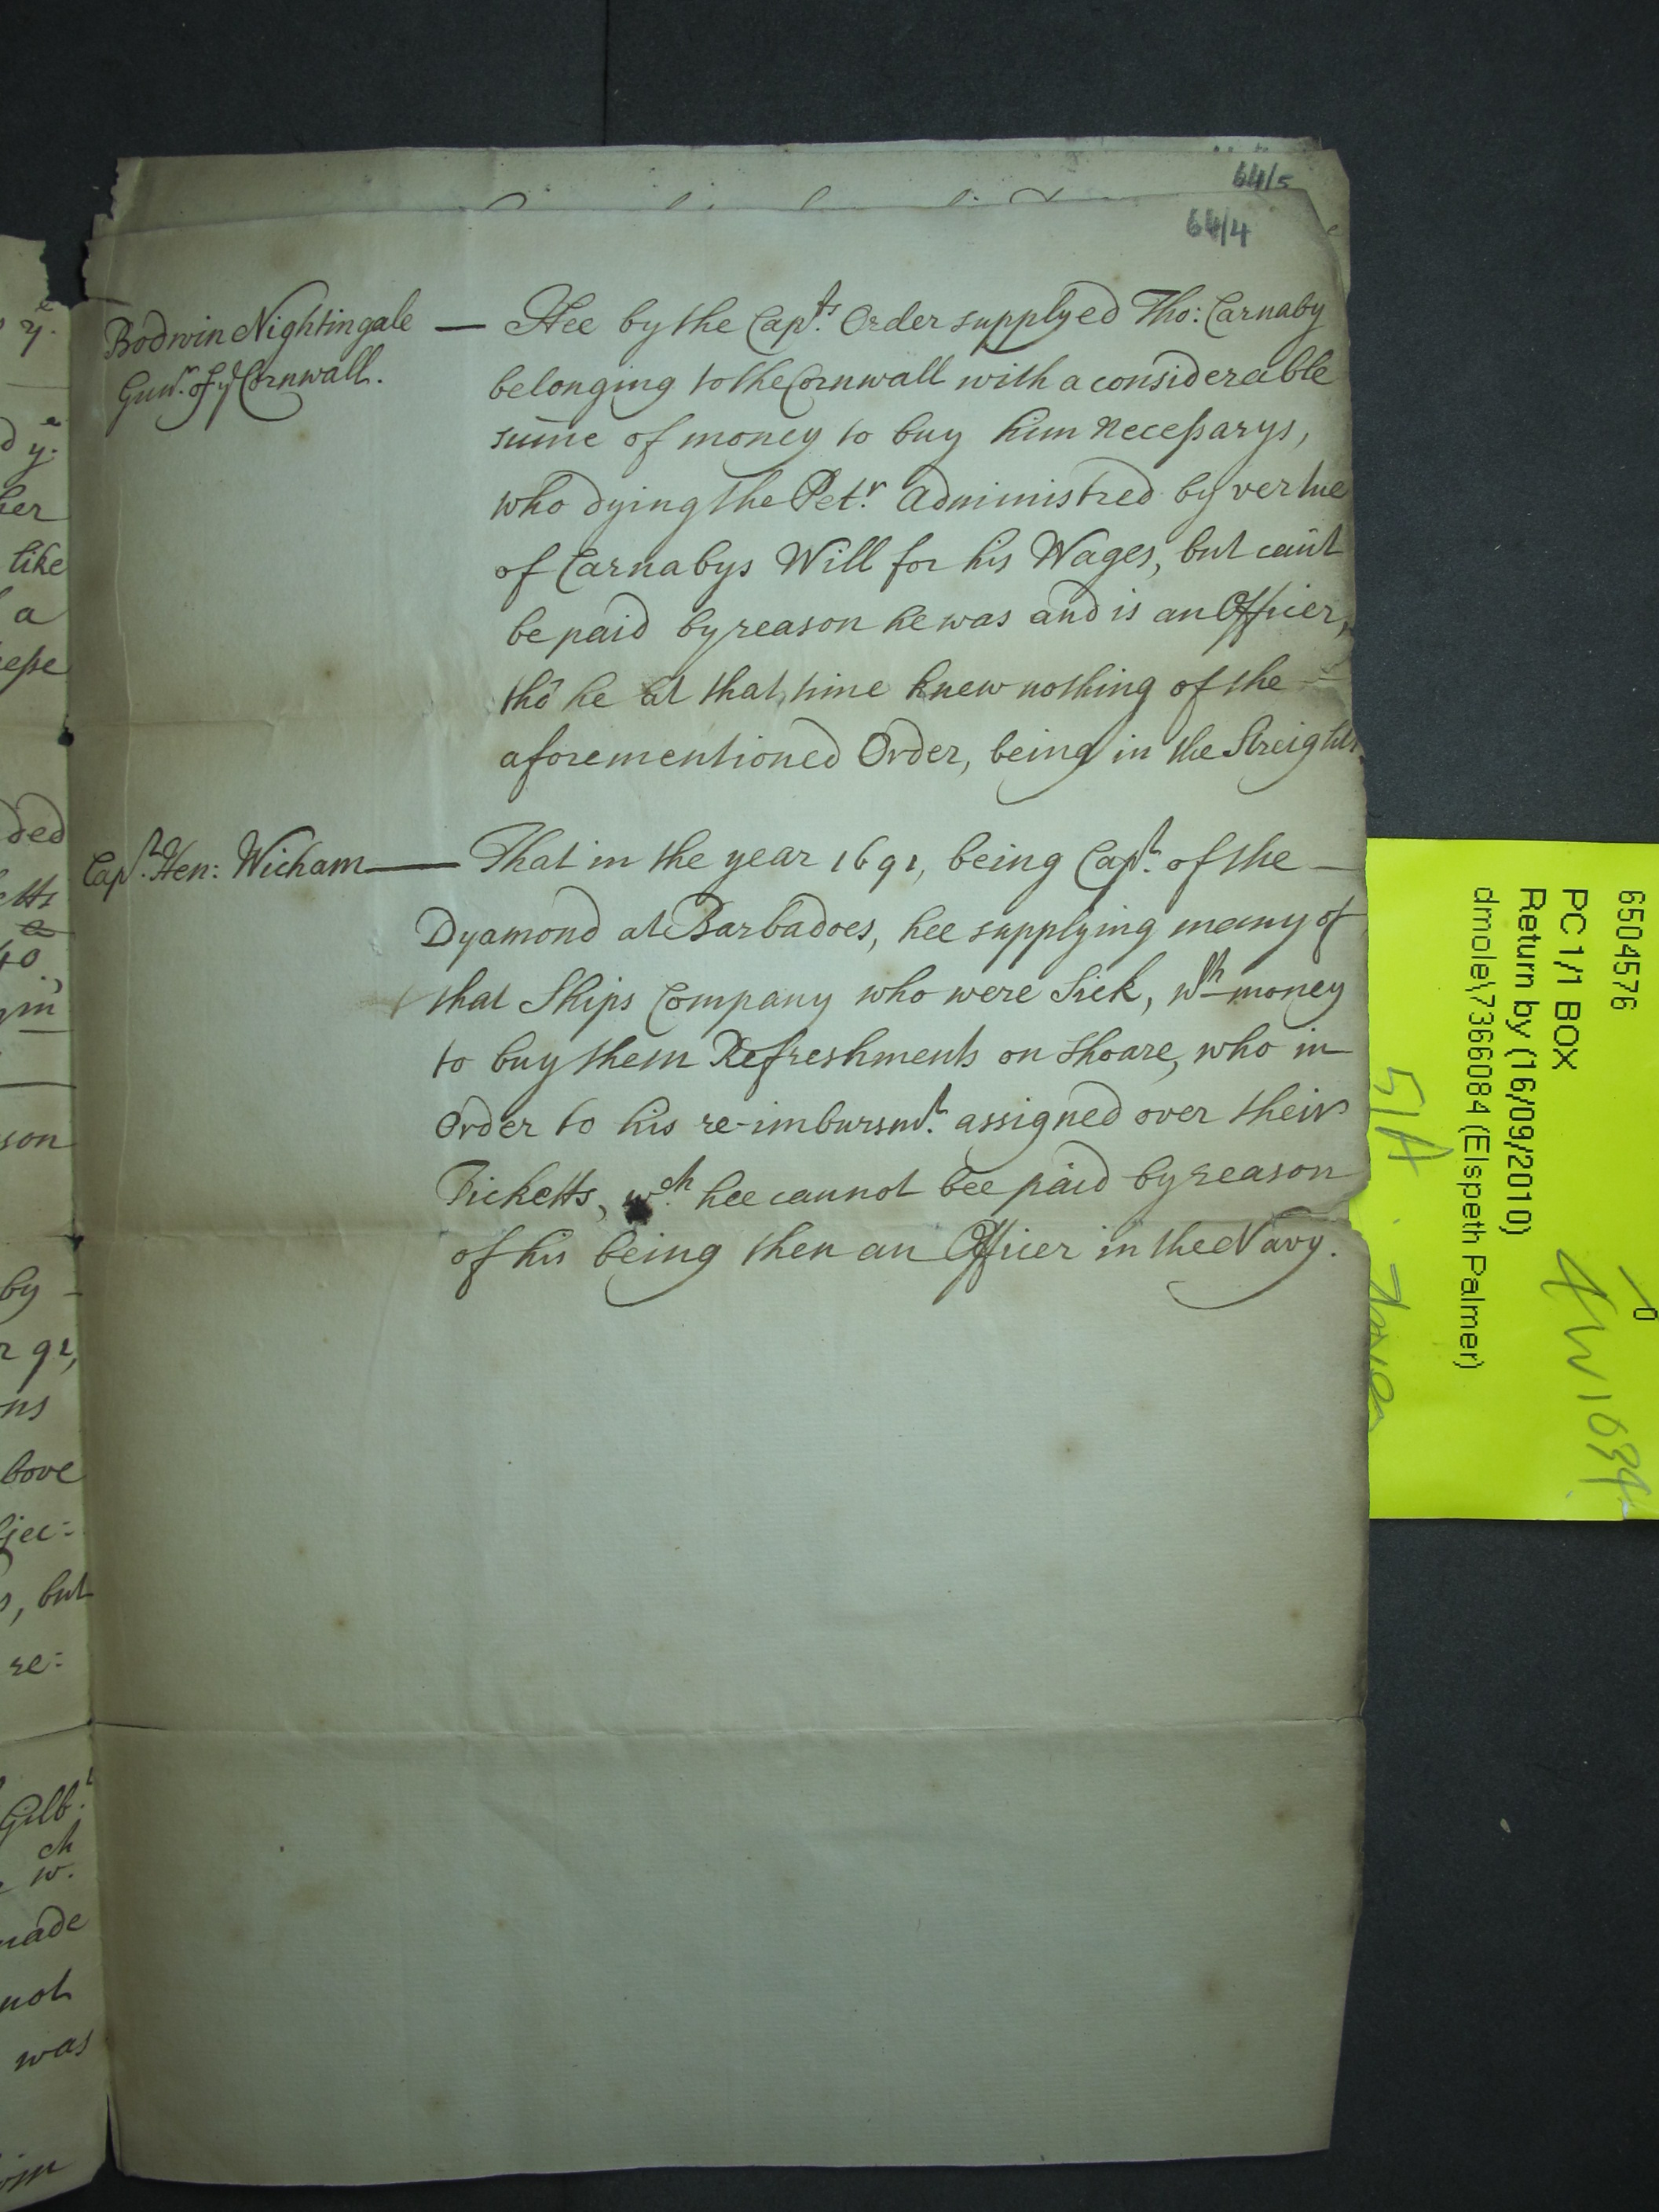 64/5
64/4
Bodwin Nightingale — Hee by the Capt.s Order supplyed Tho: Carnaby
Gunr. of ye Cornwall.
belonging to the Cornwall with a considerable
sume of money to buy him necessarys,
who dying the Petr. administred by vertue
of Carnabys Will for his Wages, but can't
be paid by reason he was and is an Officer,
tho he at that time knew nothing of the
aforementioned Order, being in the Streights.
Capt. Hen: Wicham — That in the year 1691, being Capt. of the
Dyamond at Barbadoes, hee supplying many of
that Ships Company who were Sick, wth money
to buy them Refreshments on shoare, who in
Order to his re-imbursmt. assigned over their
Ticketts, wch. hee cannot bee paid by reason
of his being then an Officer in the Navy.
like
a
ded
son
by
91,
ns
bove
, but
re:
Gilbt.
ch
w.
made
not
was
6504576
PC 1/1 BOX
Return by (16/09/2010)
dmole\7366084 (Elspeth Palmer)
51A